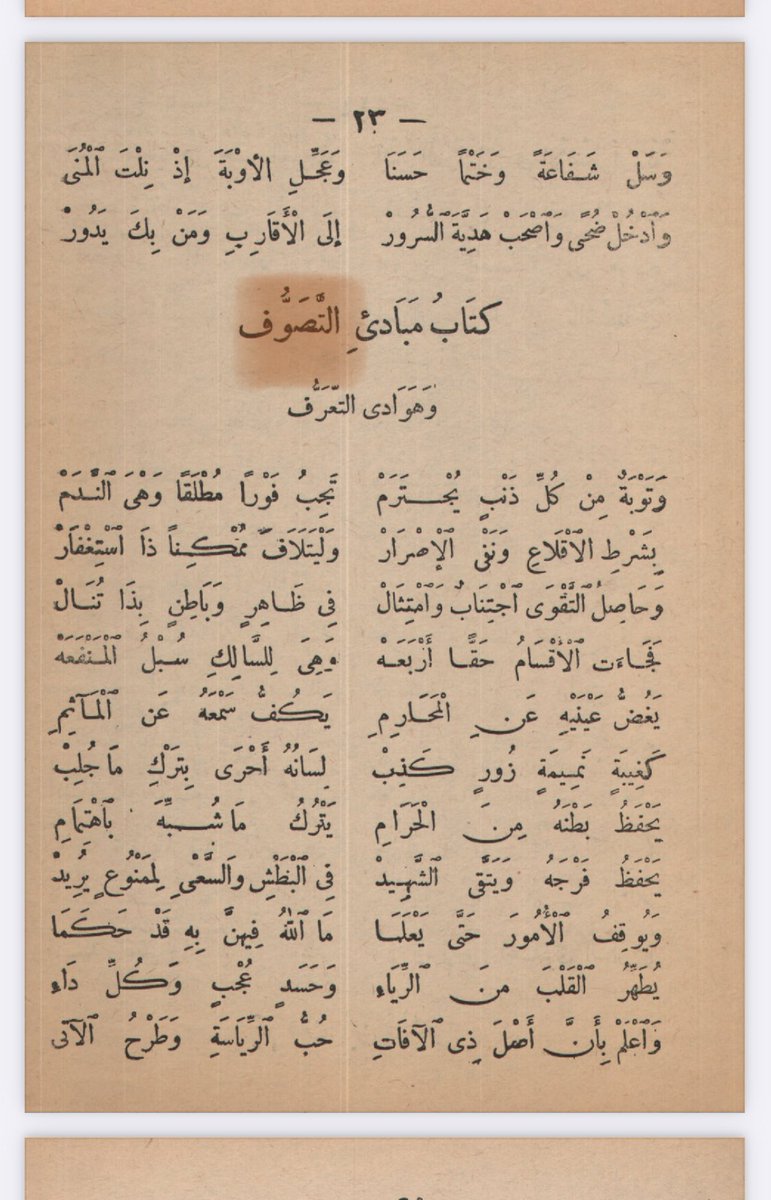 — ٢٣ —
وَسَلْ شَفَاعَةً وَخَتْمًا حَسَنَا وَعَجِّلِ الأَوْبَةَ إِذْ نِلْتَ ٱلْمُنَى
وَٱدْخُلْ ضُحًى وَٱصْحَبْ هَدِيَّةَ ٱلسُّرُورْ إِلَى الْأَقَارِبِ وَمَنْ بِكَ يَدُورْ
كِتَابُ مَبَادِئِ التَّصَوُّف
وَهَوَادِى التَّعَرُّف
وَتَوْبَةٌ مِنْ كُلِّ ذَنْبٍ يُجْتَرَمْ تَجِبُ فَوْرًا مُطْلَقًا وَهْىَ ٱلنَّدَمْ
بِشَرْطِ الْأَقْلَاعِ وَنَفْىِ الْإِصْرَارْ وَلْيَتَلَافَ مُمْكِناً ذَا ٱسْتِغْفَارْ
وَحَاصِلُ ٱلتَّقْوَى ٱجْتِنَابٌ وَٱمْتِثَالْ فِى ظَاهِرٍ وَبَاطِنٍ بِذَا تُنَالْ
فَجَاءَت ٱلْأَقْسَامُ حَقًّا أَرْبَعَهْ وَهِىَ لِلسَّالِكِ سُبْلُ ٱلْمَنْفَعَهْ
يَغُضُّ عَيْنَيْهِ عَنِ الْمَحَارِمِ يَكُفُّ سَمْعَهُ عَنِ ٱلْمَآثِمِ
كَغِيبَةٍ نَمِيمَةٍ زُورٍ كَذِبْ لِسَانُهُ أَحْرَى بِتَرْكِ مَا جُلِبْ
يَحْفَظُ بَطْنَهُ مِنَ الْحَرَامِ يَتْرُكُ مَا شُبِّهَ بِٱهْتِمَامِ
يَحْفَظُ فَرْجَهُ وَيَتَّقِى ٱلشَّهِيدْ فِى ٱلْبَطْشِ وَٱلسَّعْىِ لِمَمْنُوعٍ يُرِيدْ
وَيُوقِفُ ٱلْأُمُورَ حَتَّى يَعْلَمَا مَا ٱللهُ فِيهِنَّ بِهِ قَدْ حَكَمَا
يُطَهِّرُ ٱلْقَلْبَ مِنَ ٱلرِّيَاءِ وَحَسَدٍ عُجْبٍ وَكُلِّ دَاءِ
وَٱعْلَمْ بِأَنَّ أَصْلَ ذِى ٱلآفَاتِ حُبُّ ٱلرِّيَاسَةِ وَطَرْحُ ٱلآتِى